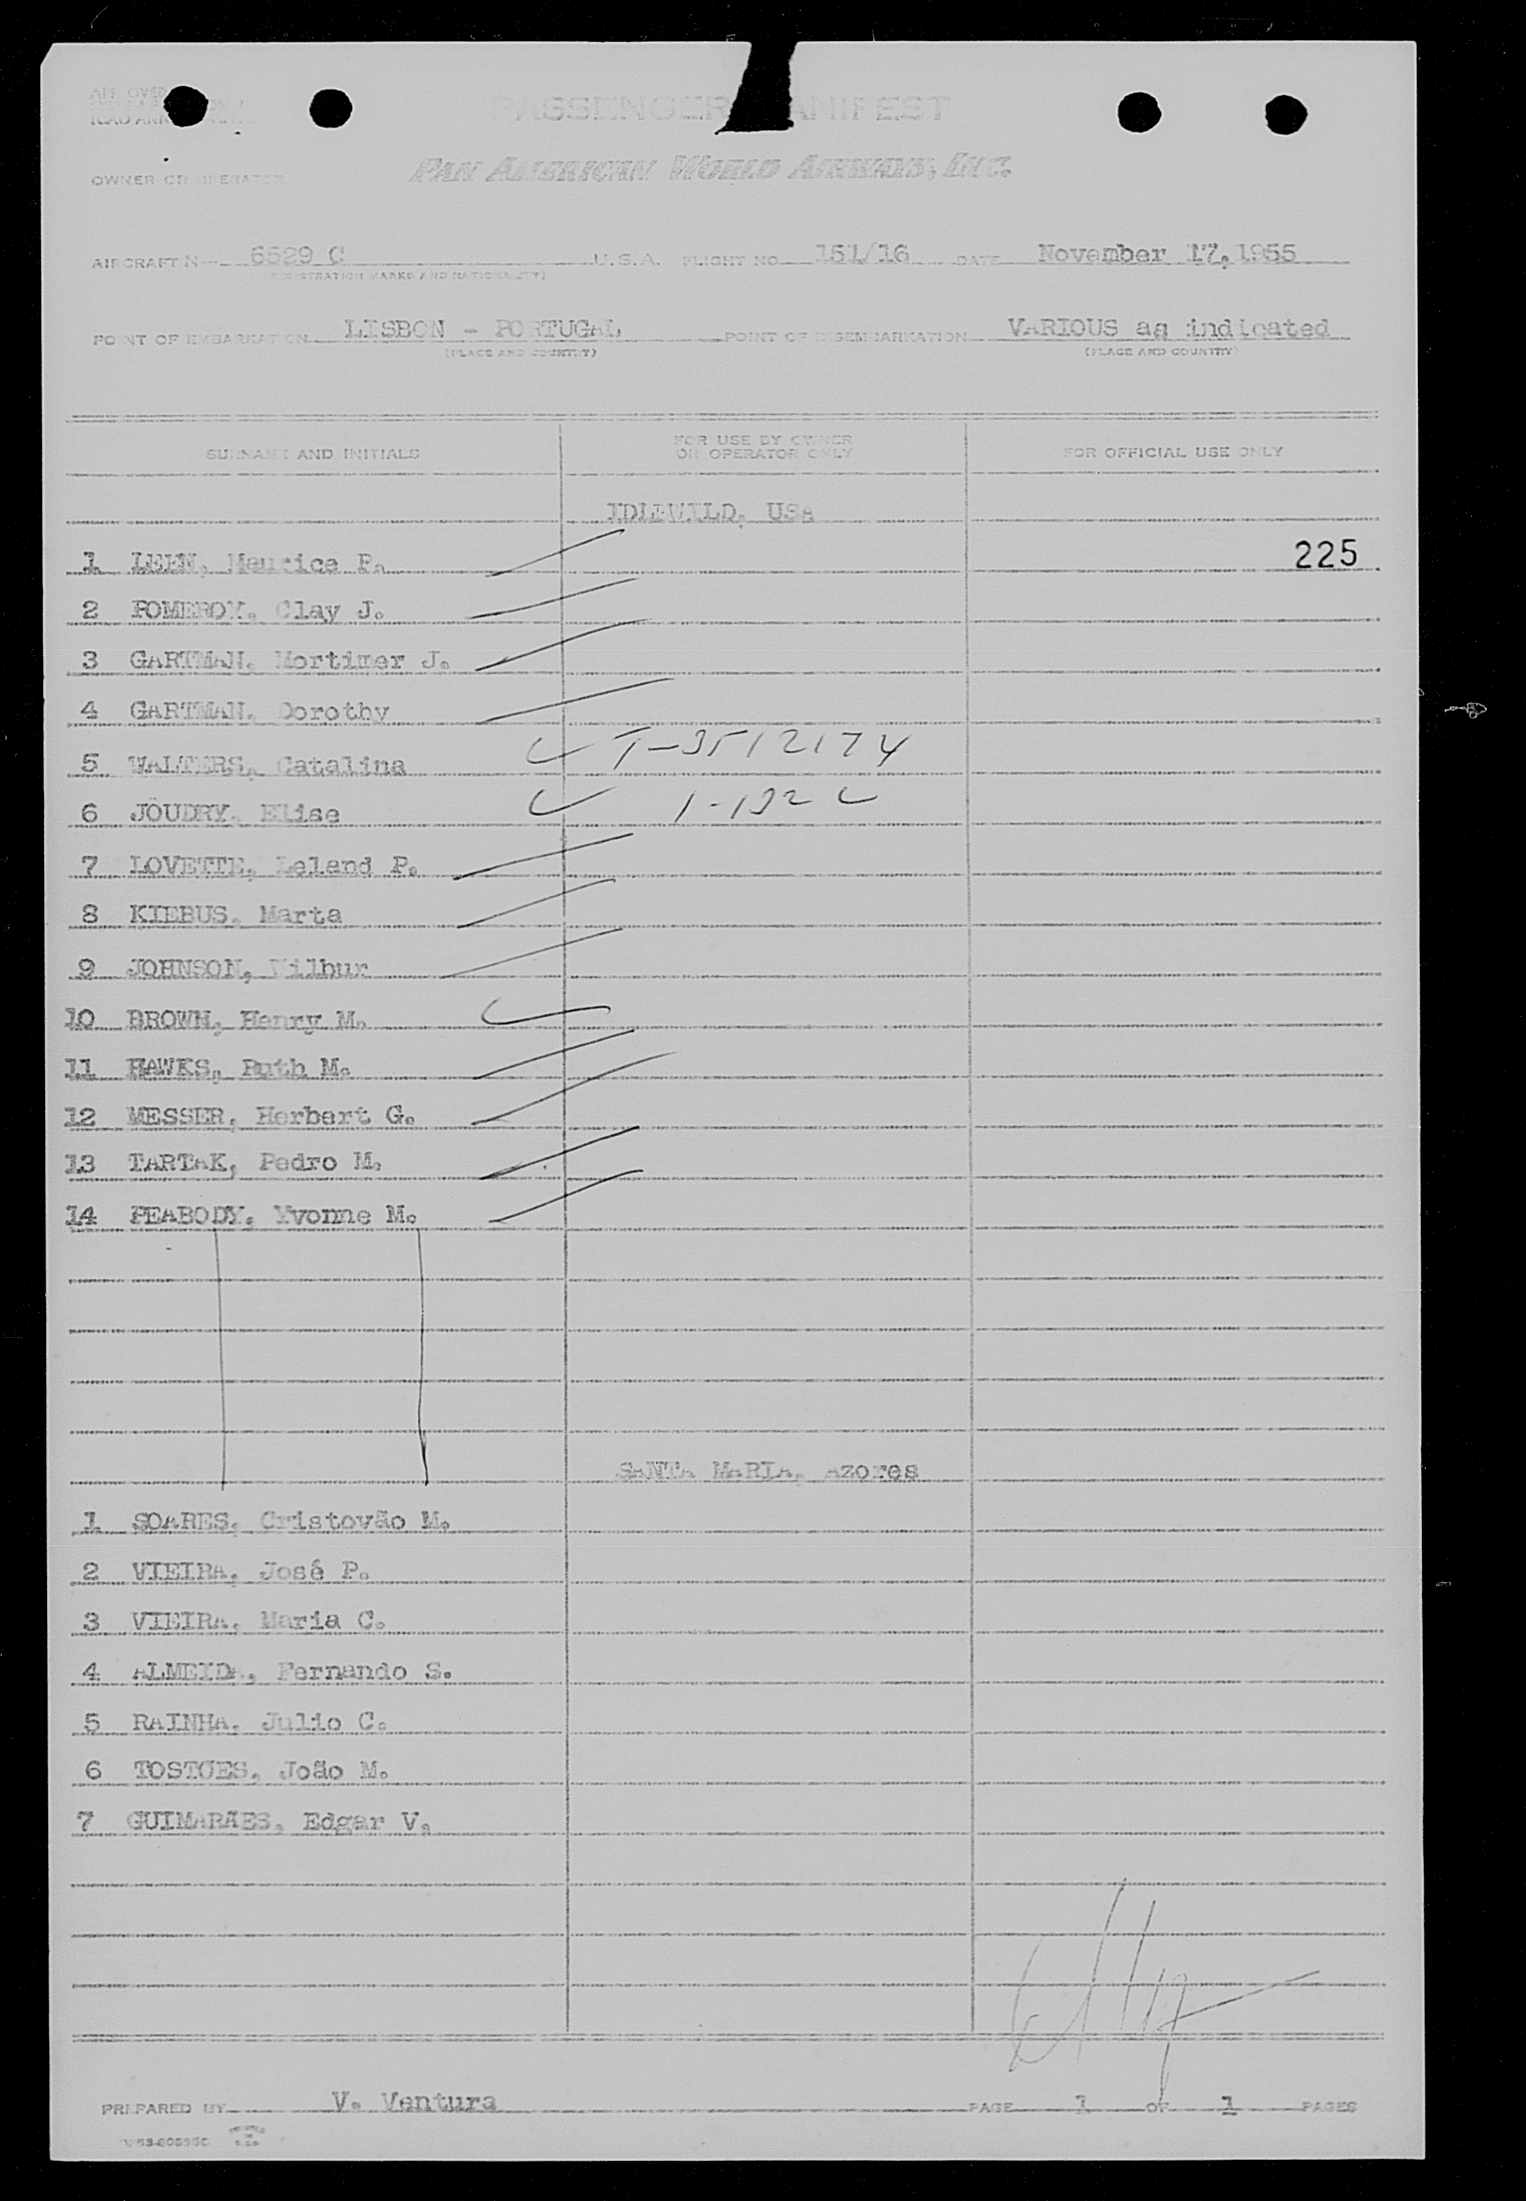 PASSENGER MANIFEST
OWNER OR OPERATOR PAN AMERICAN WORLD AIRWAYS, INC.
AIRCRAFT N— 6529 C U.S.A. FLIGHT NO 151/16 DATE November 17, 1955
(REGISTRATION MARKS AND NATIONALITY)
POINT OF EMBARKATION LISBON - PORTUGAL POINT OF DISEMBARKATION VARIOUS as indicated
(PLACE AND COUNTRY) (PLACE AND COUNTRY)
SURNAME AND INITIALS FOR USE BY OWNER OR OPERATOR ONLY FOR OFFICIAL USE ONLY
IDLEWILD, USA
1 LEEN, Maurice P. 225
2 POMEROY, Clay J.
3 GARTMAN, Mortimer J.
4 GARTMAN, Dorothy
5 WALTERS, Catalina T-3512174
6 JOUDRY, Elise
7 LOVETTE, Leland P.
8 KIEBUS, Marta
9 JOHNSON, Wilbur
10 BROWN, Henry M.
11 HAWKS, Ruth M.
12 MESSER, Herbert G.
13 TARTAK, Pedro M.
14 PEABODY, Yvonne M.
SANTA MARIA, Azores
1 SOARES, Cristovão M.
2 VIEIRA, José P.
3 VIEIRA, Maria C.
4 ALMEIDA, Fernando S.
5 RAINHA, Julio C.
6 TOSTÕES, João M.
7 GUIMARÃES, Edgar V.
PREPARED BY V. Ventura PAGE 1 OF 1 PAGES